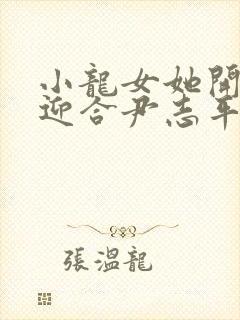 小龍女她開
迎合尹志平
張溫龍